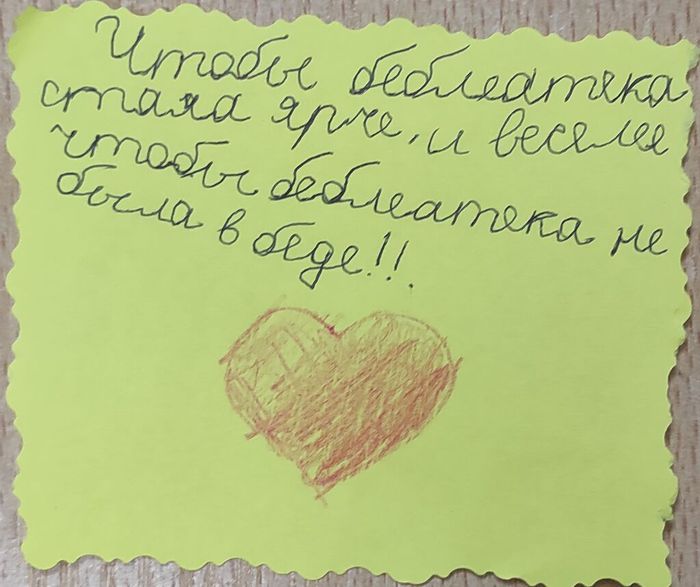 Чтобы беблеатека
стала ярче, и веселее
чтобы беблеатека не
была в беде!!!